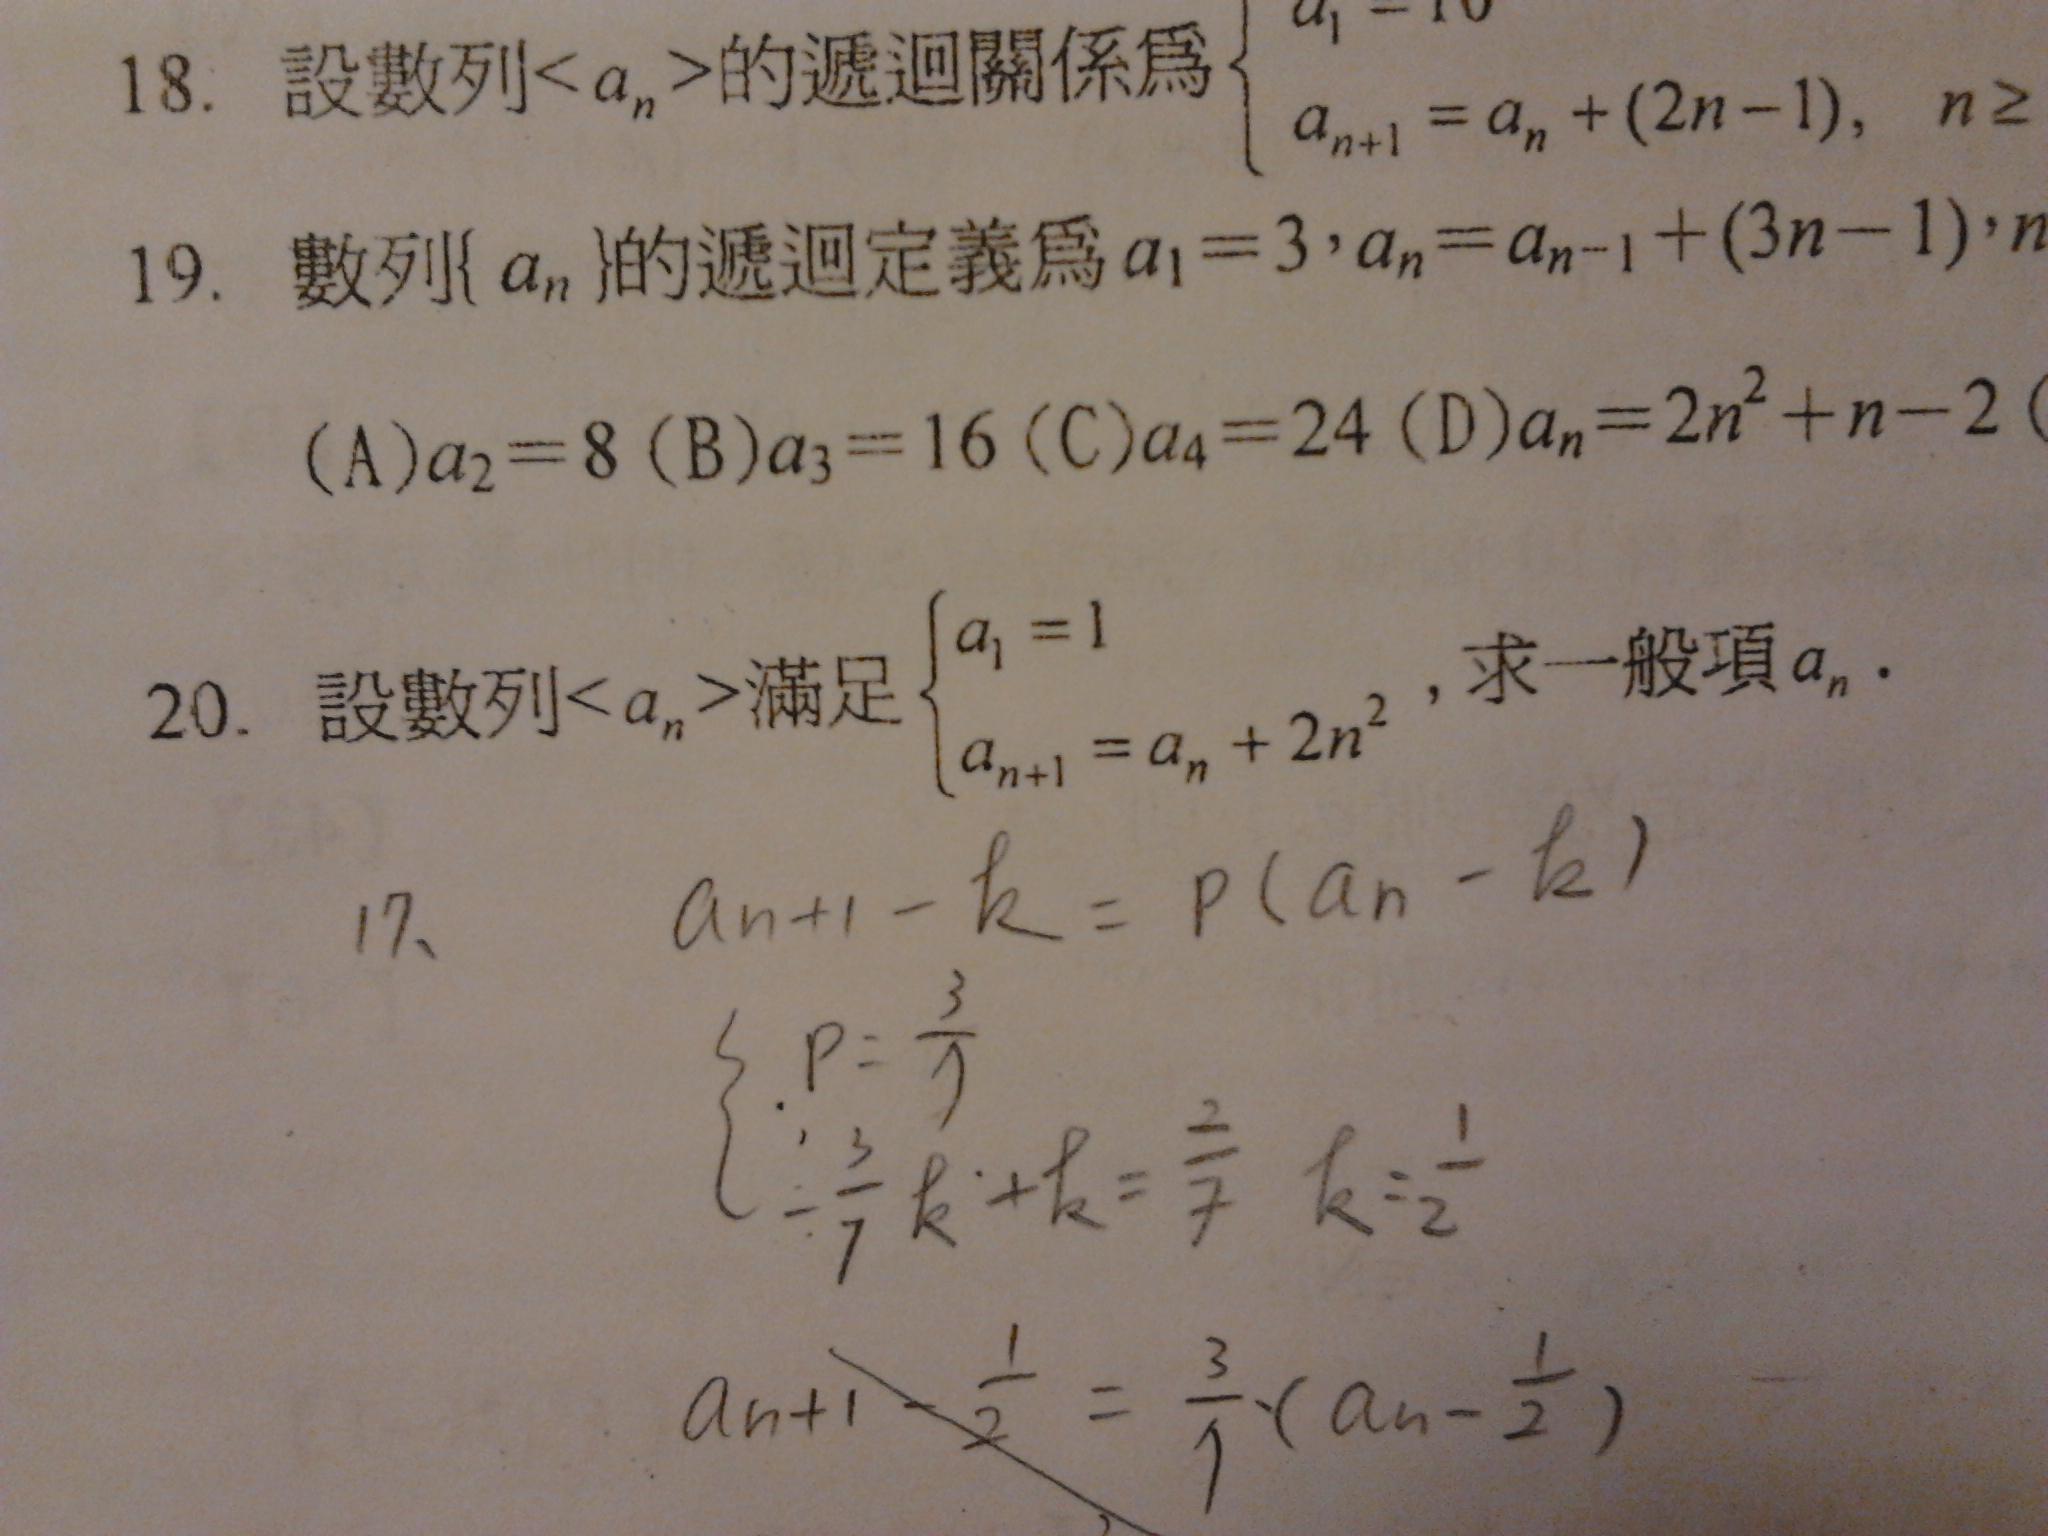 a₁ = 10
18. 設數列<aₙ>的遞迴關係為
aₙ₊₁ = aₙ + (2n−1), n ≥
19. 數列{ aₙ }的遞迴定義為a₁＝3，aₙ＝aₙ₋₁＋(3n－1)，n
(A)a₂＝8 (B)a₃＝16 (C)a₄＝24 (D)aₙ＝2n²＋n－2 (
a₁ = 1
20. 設數列<aₙ>滿足 , 求一般項aₙ．
aₙ₊₁ = aₙ + 2n²
17、 an+1 − k = P(an − k)
P = 3/7
−3/7 k + k = 2/7 k = 1/2
an+1 − 1/2 = 3/7 (an − 1/2)